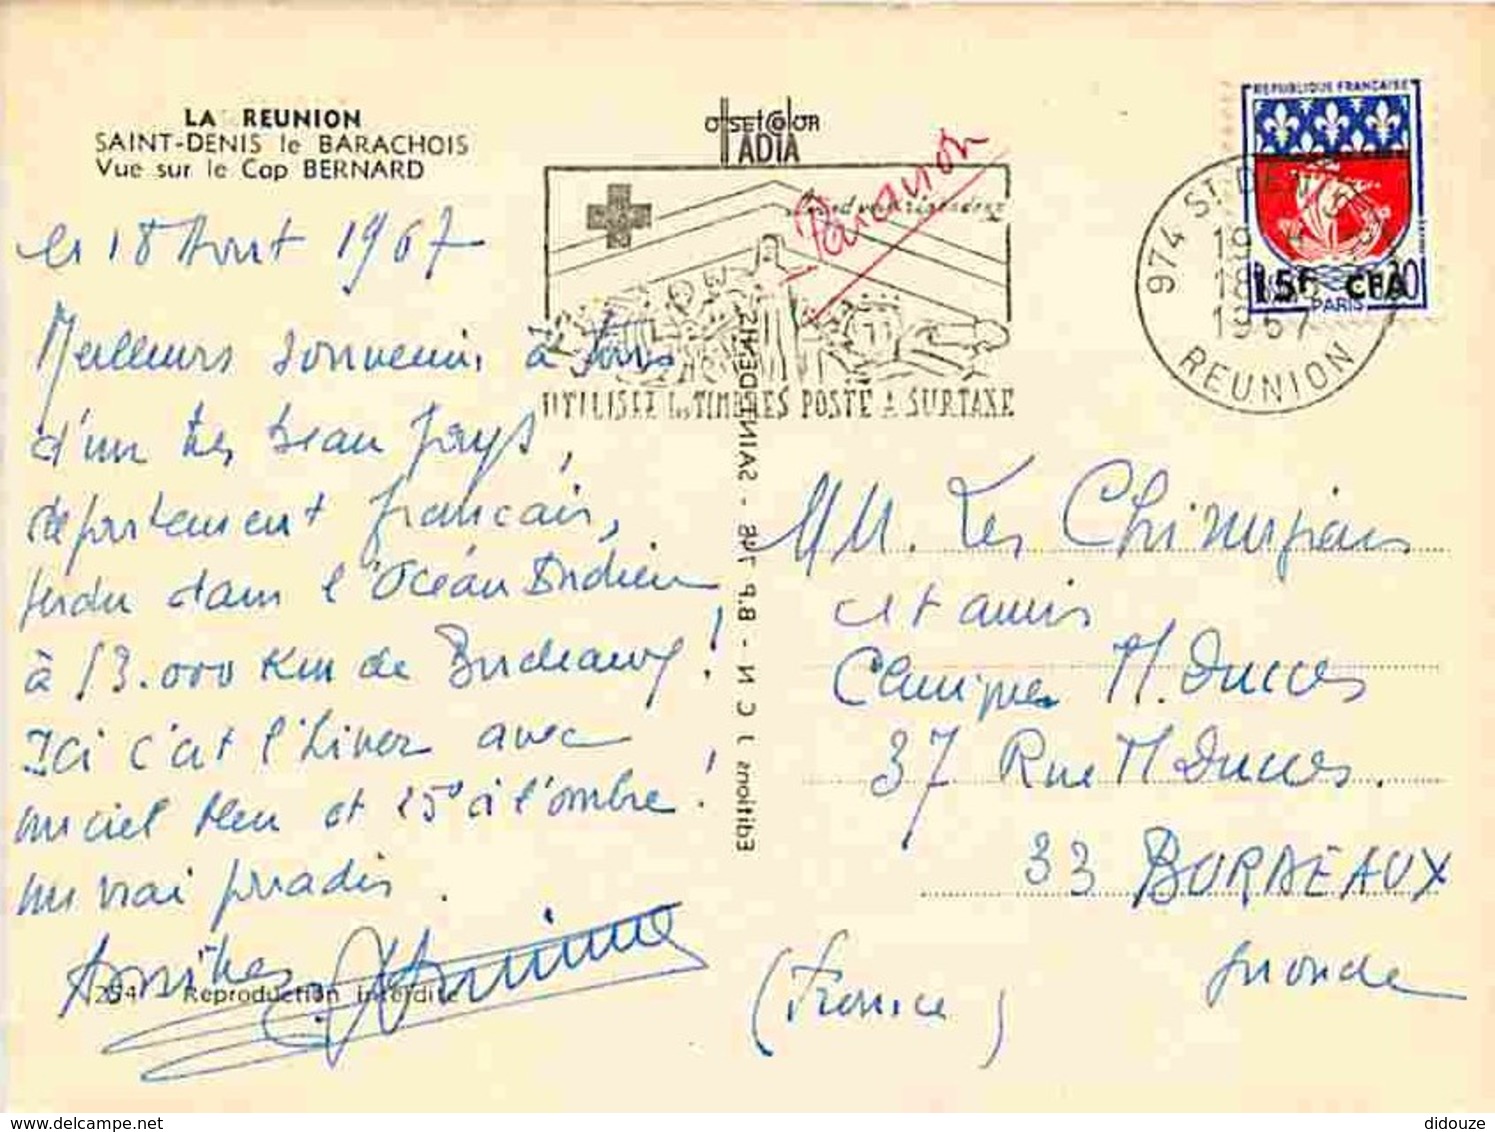 LA REUNION
SAINT-DENIS le BARACHOIS
Vue sur le Cap BERNARD
OFFSET COLOR
IADIA
Réunion
UTILISEZ les TIMBRES POSTE A SURTAXE
974 ST DENIS
19 H
18
1967
REUNION
REPUBLIQUE FRANÇAISE
15F CFA
0,30
PARIS
le 18 Aout 1967
Meilleurs souvenirs à tous
d'un très beau pays,
département français,
perdu dans l'Océan Indien
à 13.000 Km de Bordeaux !
Ici c'est l'hiver avec
un ciel bleu et 25° à l'ombre !
un vrai paradis.
Amitiés
294 Reproduction interdite
Editions J C N - B.P. 748 - SAINT-DENIS
MM. Les Chirurgiens
et amis
Clinique St. Ducos
37 Rue St Ducos.
33 BORDEAUX
Gironde
(France)
didouze